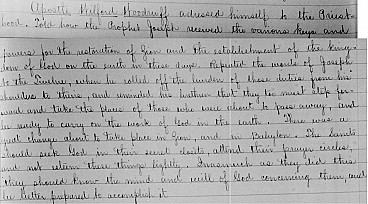 Apostle Wilford Woodruff adressed himself to the Priest-
hood. Told how the Prophet Joseph received the various keys and
powers for the restoration of Zion and the establishment of the king-
dom of God on the earth in these days. Repeated the words of Joseph
to the Twelve, when he rolled off the burden of these duties from his
shoulders to theirs, and reminded his brethren that they too must step for-
ward and take the place of those who were about to pass away, and
be ready to carry on the work of God in the earth. There was a
great change about to take place in Zion, and in Babylon. The Saints
should seek God in their secret closets, attend their prayer circles,
and not return these things lightly. Inasmuch as they did this
they should know the mind and will of God concerning them, and
be better prepared to accomplish it